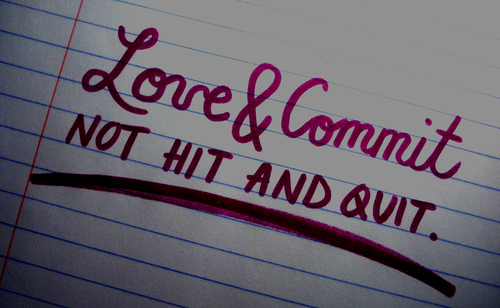 Love & Commit
NOT HIT AND QUIT.